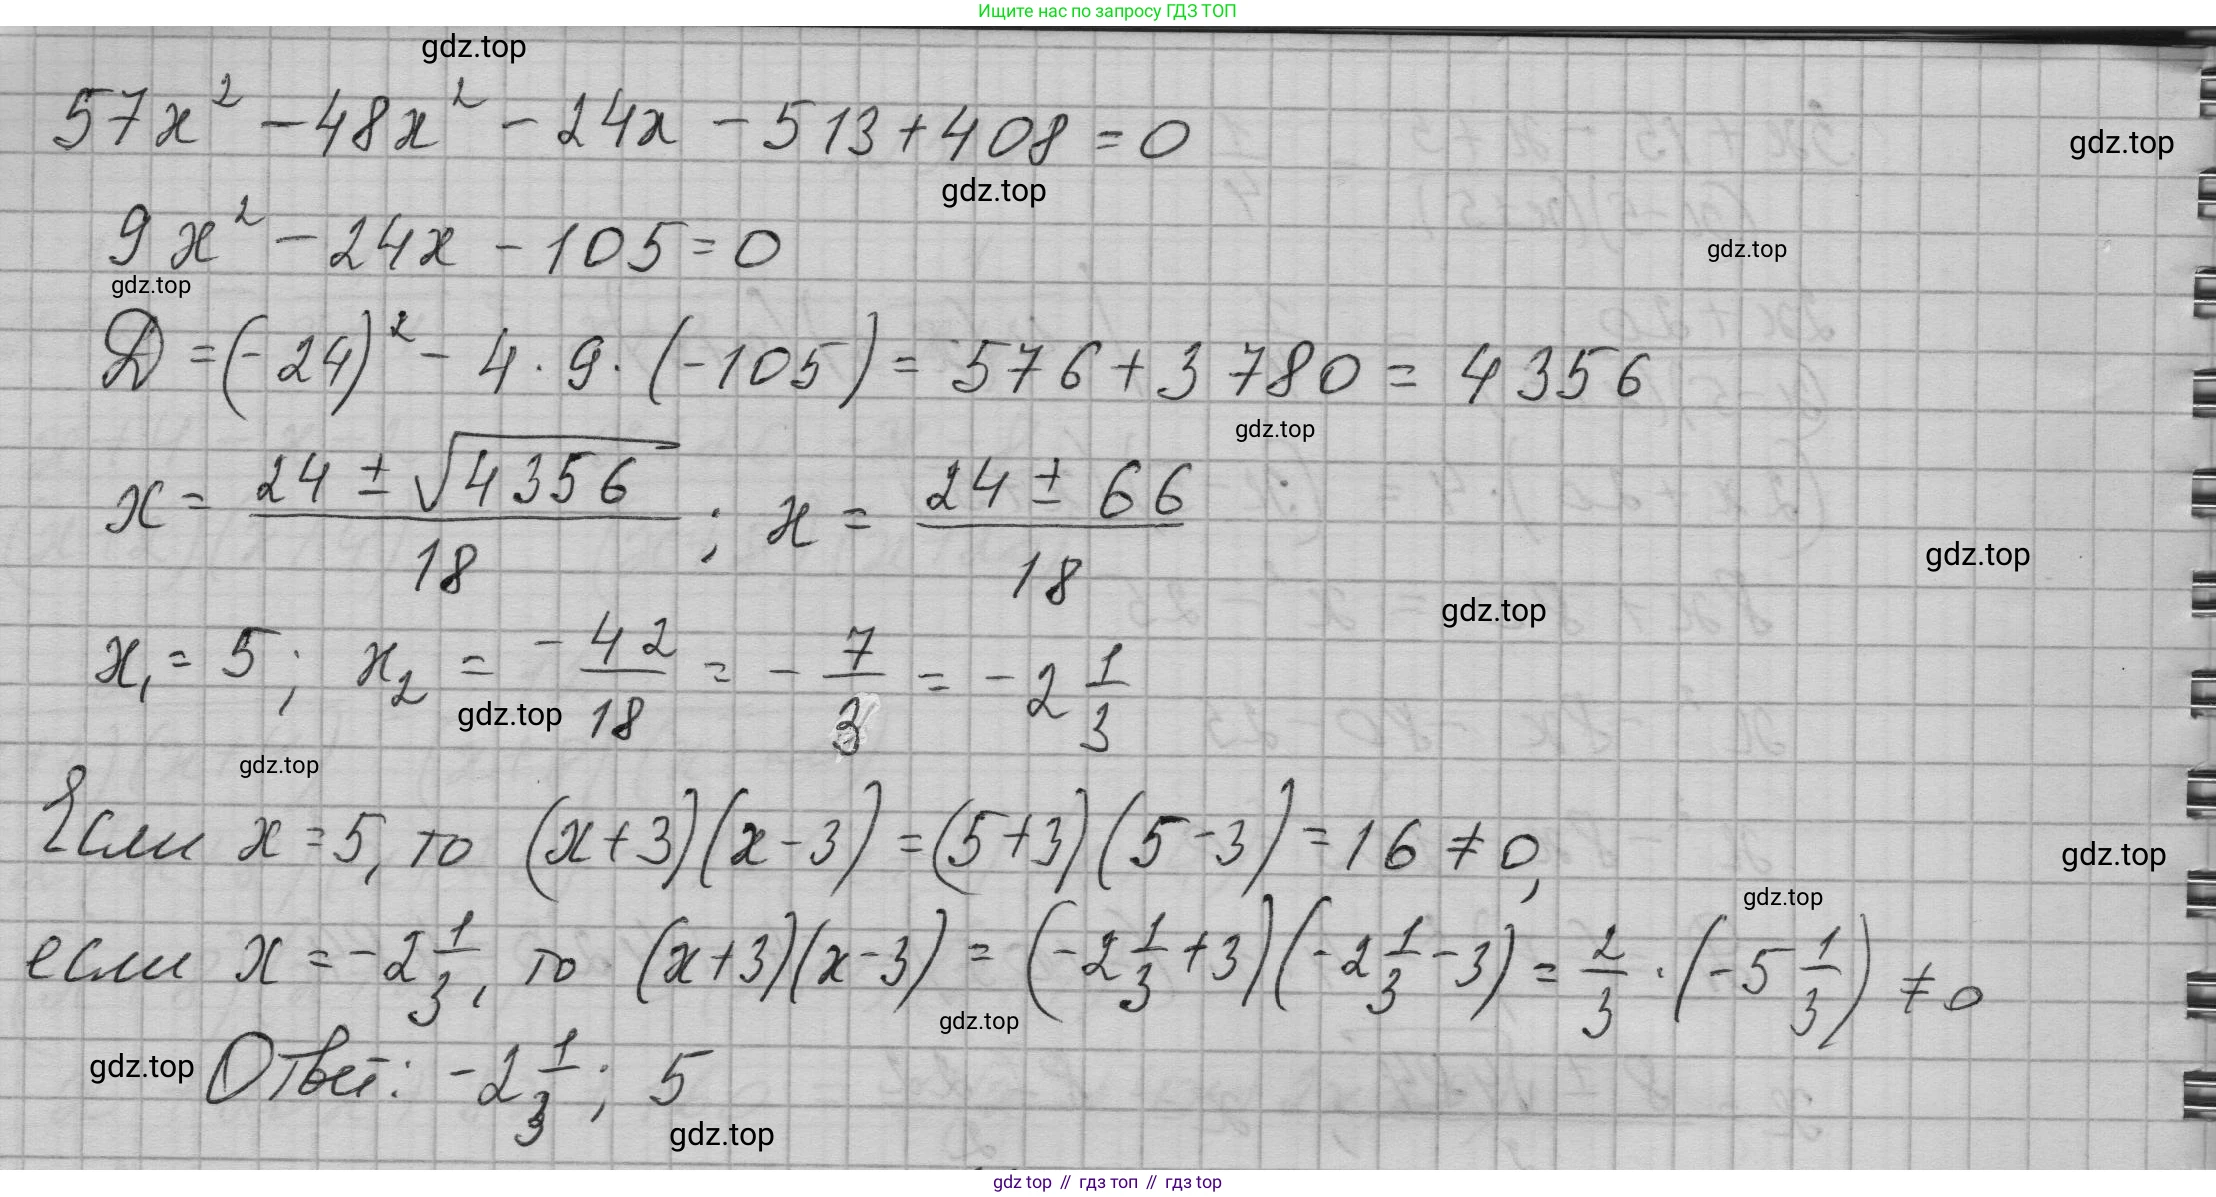 Ищите нас по запросу ГДЗ ТОП
gdz.top
57x² - 48x² - 24x - 513 + 408 = 0
gdz.top
gdz.top
9x² - 24x - 105 = 0
gdz.top
gdz.top
D = (-24)² - 4 · 9 · (-105) = 576 + 3780 = 4356
gdz.top
x = (24 ± √4356)/18 ; x = (24 ± 66)/18
gdz.top
gdz.top
x₁ = 5; x₂ = -42/18 = -7/3 = -2 1/3
gdz.top
gdz.top
Если x = 5, то (x+3)(x-3) = (5+3)(5-3) = 16 ≠ 0,
gdz.top
gdz.top
если x = -2 1/3, то (x+3)(x-3) = (-2 1/3 + 3)(-2 1/3 - 3) = 2/3 · (-5 1/3) ≠ 0
gdz.top
gdz.top
Ответ: -2 1/3; 5
gdz.top
gdz top // гдз топ // гдз top